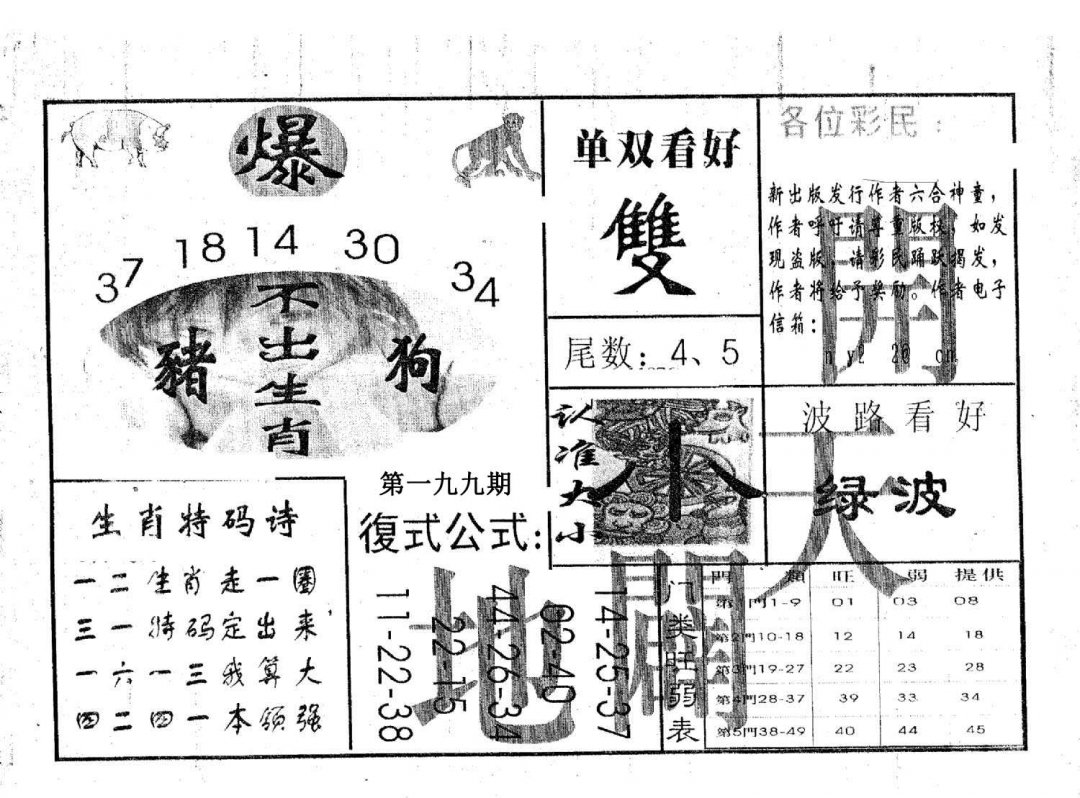 爆
37 18 14 30 34
不出生肖
豬
狗
单双看好
雙
尾数：4、5
各位彩民：
新出版发行作者六合神童，
作者呼吁请尊重版权，如发
现盗版，请彩民踊跃揭发，
作者将给予奖励。作者电子
信箱：
開
认准大小
小
波路看好
绿波
天
生肖特码诗
一二生肖走一圈
三一特码定出来
一六一三我算大
四二四一本领强
第一九九期
復式公式：
11-22-38
22-15
44-26-34
02-40
14-25-37
地
開
门类旺弱表
門 類 旺 弱 提供
第1門1-9 01 03 08
第2門10-18 12 14 18
第3門19-27 22 23 28
第4門28-37 39 33 34
第5門38-49 40 44 45